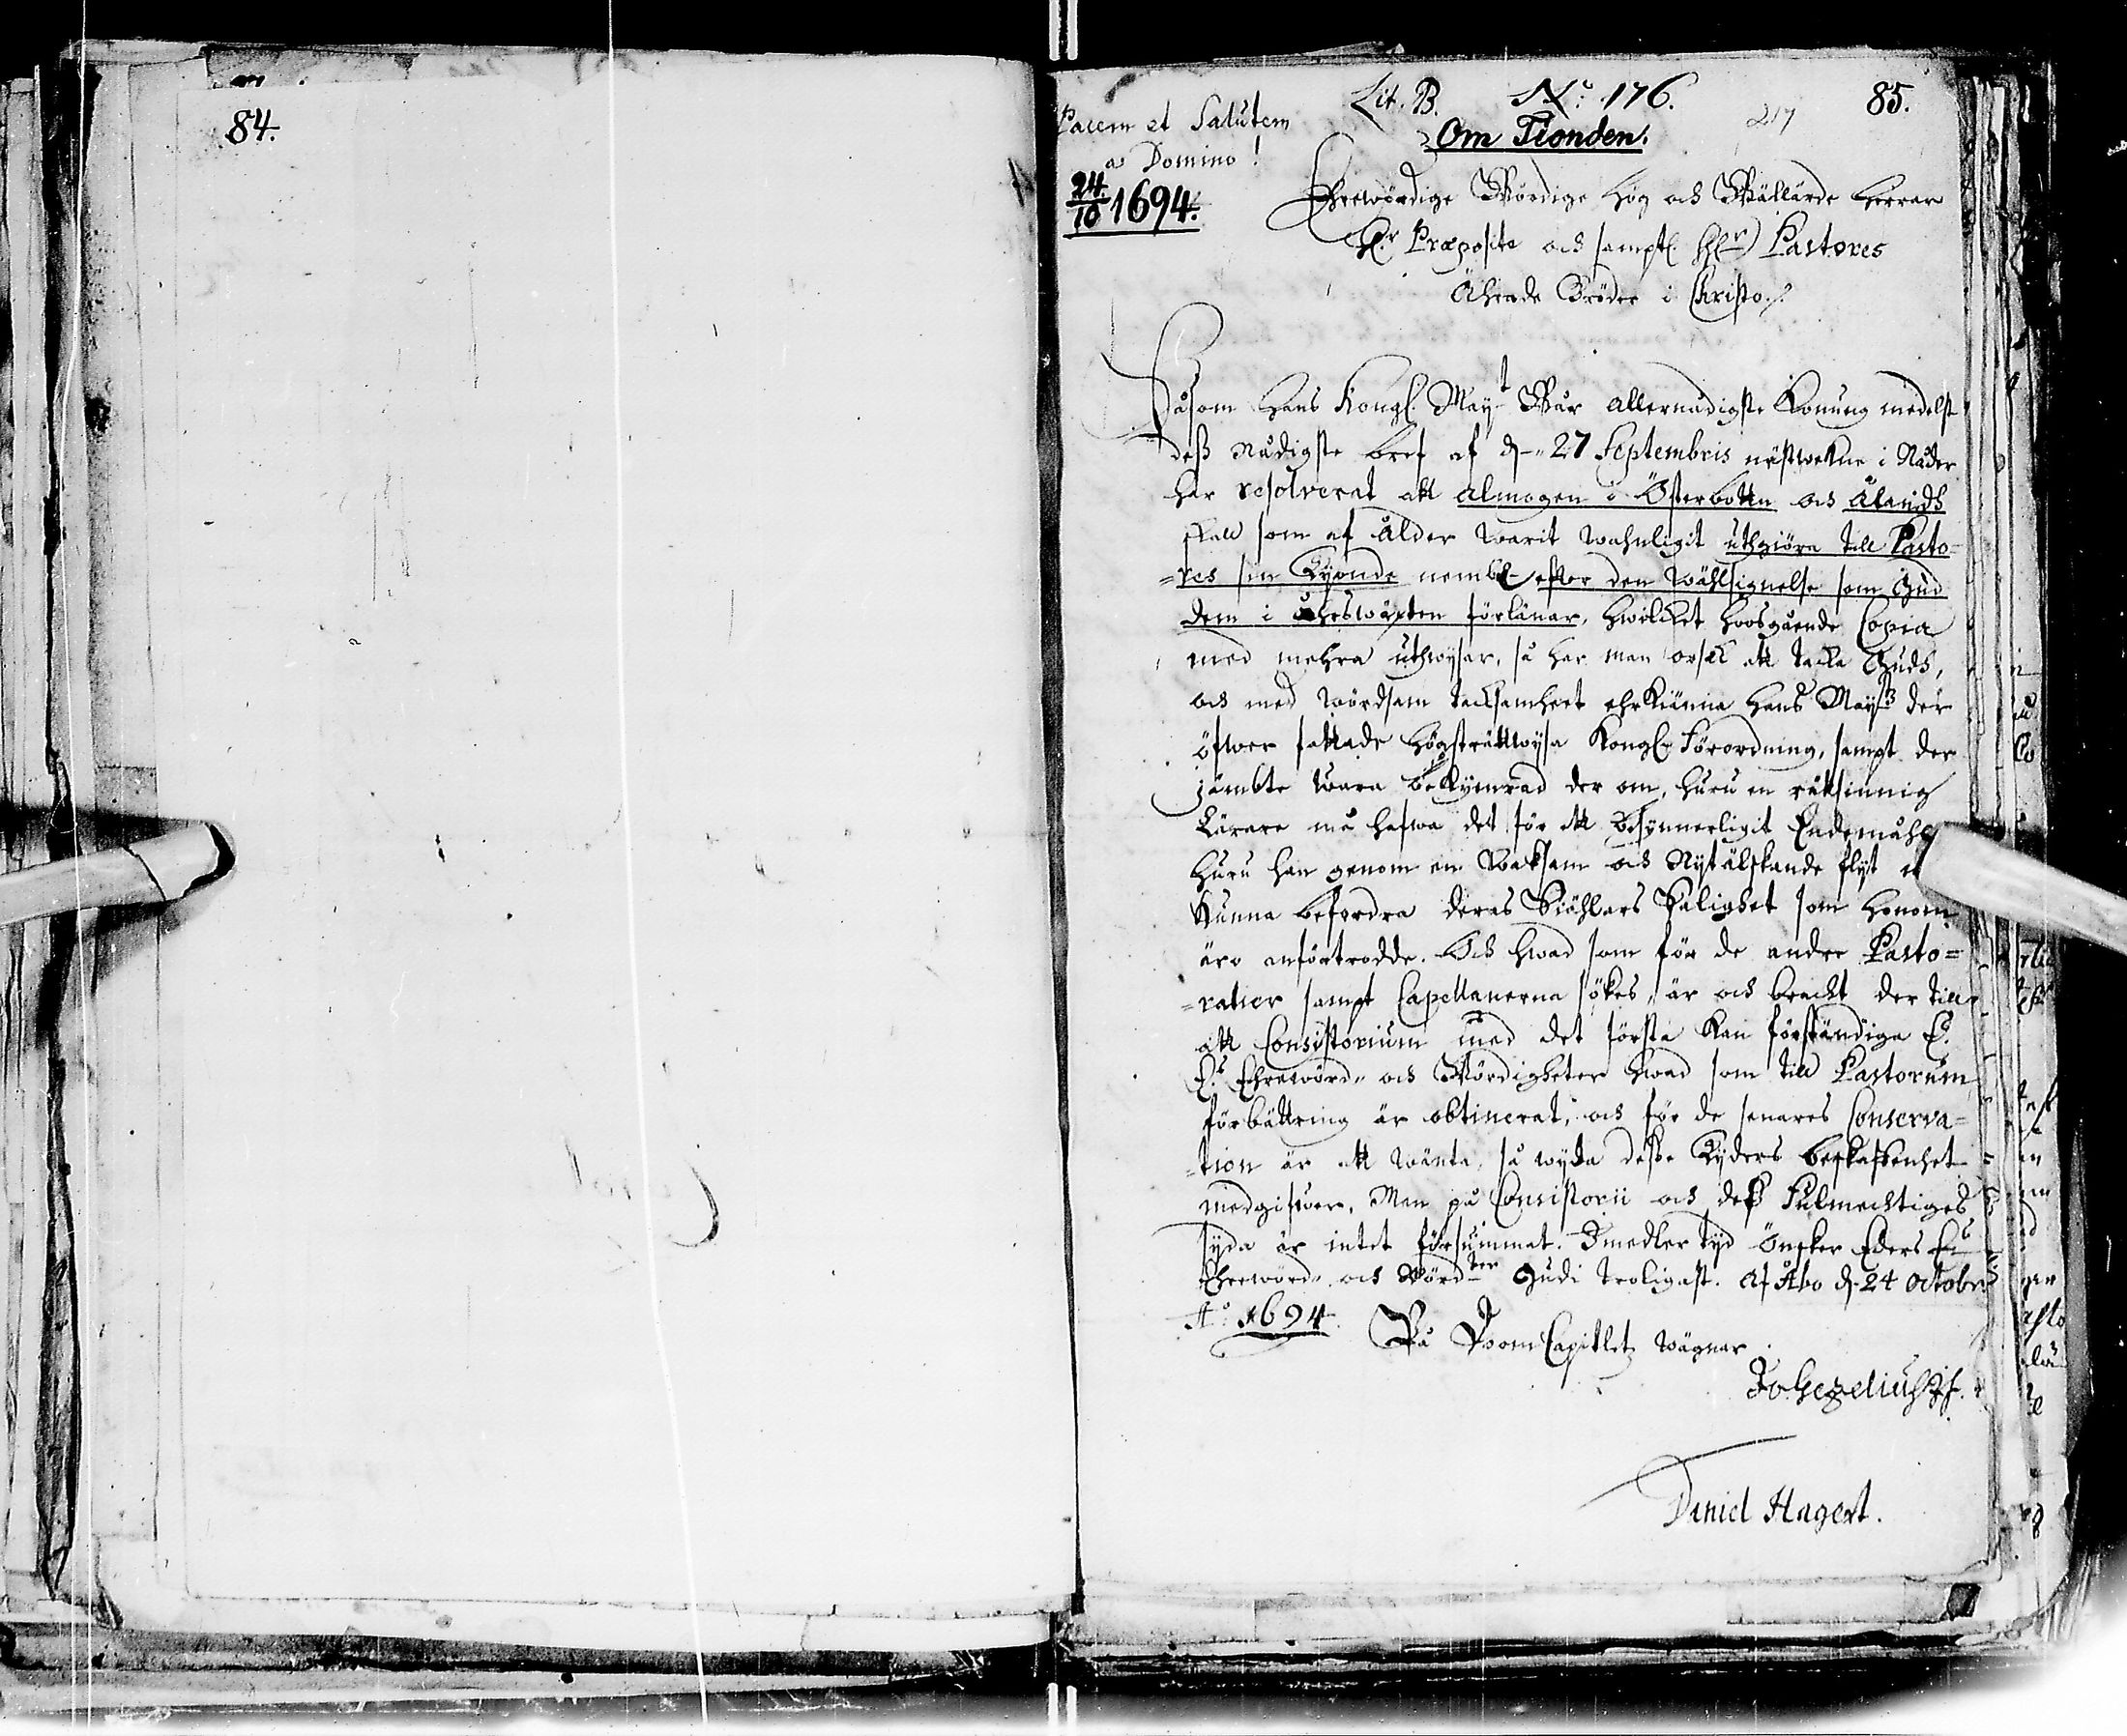 84.
Lit. B. N:o 176. 217 85.
Pacem et Salutem
a Domino!
Om Tionden.
24/10 1694.
Ehrewördige Wördige Hög och Wällärde Herrar
H:r Præposite och sampt: HH:r Pastores
Ährade Bröder i Christo.
Såsom Hans Kongl. May:t Wår allernådigste Konung medelst
deß nådigste bref af d. 27 Septembris nästwekne i Nåder
har resolverat att almogen i Österbotten och Ålandh
skall som af ålder warit wahnligit uthgiöra till Pasto=
=res sin Tyonde nembl. efter den wählsignelse som Gud
dem i åhrswäxten förlänar, hwilcket hoosgående Copia
med mehra uthwysar, så har man orsak att tacka Gudh,
och med wördsam tacksamheet ehrkiänna Hans May:tz der
öfwer fattade högsträttwysa Kongl. Förordning, sampt der
jämbte wara bekymrad der om, huru en rättsinnig
Lärare må hafwa det för ett besynnerligit Endemåhl
huru han genom en Waksam och Nytälskande flyt
kunna befordra deras Siählars Salighet som honom
äro anförtrodde. Och hwad som för de andre Pasto=
=ratier sampt Capellanerna sökes, är och bracht der till
att Consistorium med det första kan förständiga E.
E:s Ehrewörd- och Wördigheter hwad som till Pastorum
förbättring är obtinerat, och för de senares Conserva=
=tion är att wänta, så wyda desse Tyders beskaffenhet
medgifwer. Men på Consistorii och deß Fulmechtiges
syda är intet försummat. Imedler tyd önsker Eders E:s
Ehrewörd- och Wörd:ter Gudi troligast. Af Åbo d. 24 Octobr:
A:o 1694. På DoomCapitletz wägnar
Joh Gezelius Jf.
Daniel Hagert.